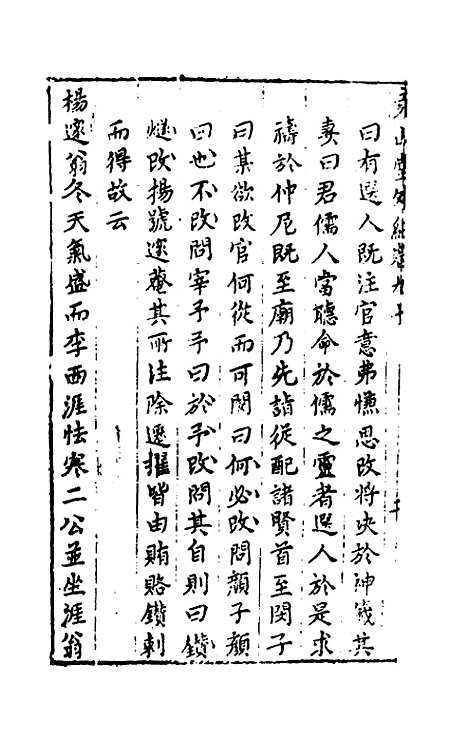 堯山堂外紀 卷九十
曰有選人既注官意弗慊思改將决於神或其
妻曰君儒人當聽命於儒之靈者選人於是求
禱於仲尼既至廟乃先詣從配諸賢首至閔子
曰某欲改官何從而可閔曰何必改問顏子顏
曰也不改問宰予予曰於予改問其自則曰鑽
燧改揚號邃菴其所注除遷擢皆由賄賂鑽刺
而得故云
楊邃翁冬天氣盛而李西涯怯寒二公並坐涯翁